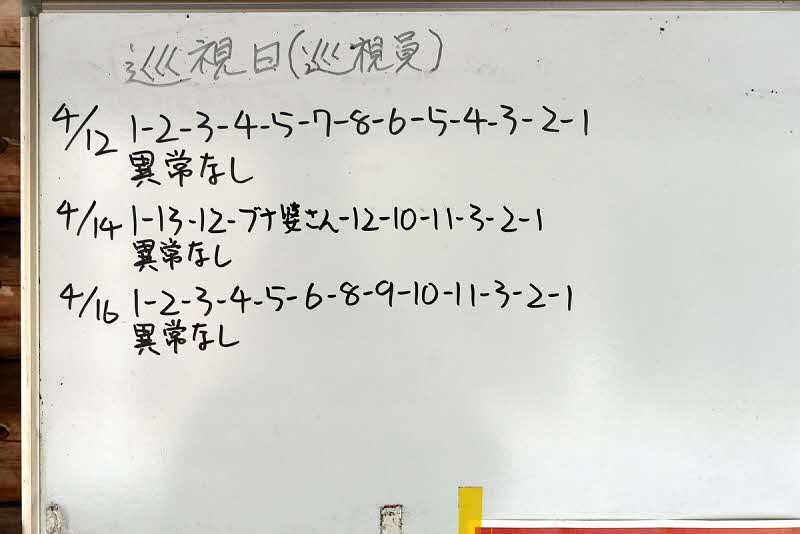 巡視日(巡視員)
4/12 1-2-3-4-5-7-8-6-5-4-3-2-1
異常なし
4/14 1-13-12-ブナ婆さん-12-10-11-3-2-1
異常なし
4/16 1-2-3-4-5-6-8-9-10-11-3-2-1
異常なし